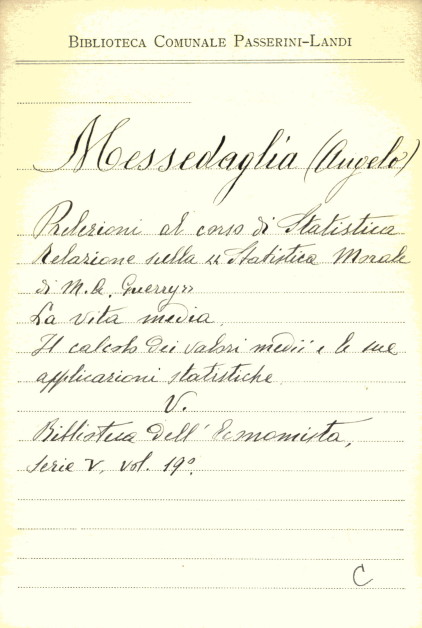 BIBLIOTECA COMUNALE PASSERINI-LANDI
Messedaglia (Angelo)
Prelezioni al corso di Statistica
Relazione sulla "Statistica Morale
di M.A. Guerry"
La vita media
Il calcolo dei valori medii e le sue
applicazioni statistiche
V.
Biblioteca dell'Economista,
serie V, vol. 19º.
C